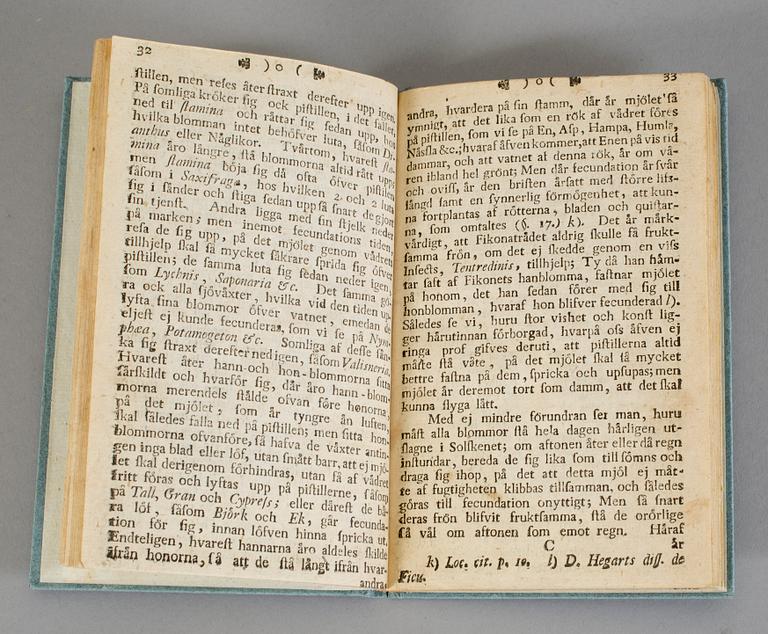 32
) o (
ſtillen, men reſes åter ſtraxt derefter upp igen.
På ſomliga kröker ſig ock piſtillen, i det ſället,
ned til ſtamina och råttar ſig ſedan upp, hos
hvilka blomman intet behöfver luta, ſåſom Di-
anthus eller Någlikor. Tvårtom, hvareſt ſta-
mina åro långre, ſtå blommorna altid rått upp;
men ſtamina böja ſig då ofta öfver piſtillen
ſåſom i Saxifraga, hos hvilken 2 och 2 luta
ſig i ſånder och ſtiga ſedan upp ſå ſnart de gjort
ſin tjenſt. Andra ligga med ſin ſtjelk neder
på marken; men inemot fecundations tiden,
reſa de ſig upp, på det mjölet genom vådrets
tillhjelp ſkal ſå mycket ſåkrare ſprida ſig öfver
piſtillen; de ſamma luta ſig ſedan neder igen,
ſom Lychnis, Saponaria &c. Det ſamma gö-
ra ock alla ſjövåxter, hvilka vid den tiden up-
lyfta ſina blommor öfver vatnet, emedan de
eljeſt ej kunde fecunderas, ſom vi ſe på Nym-
phæa, Potamogeton &c. Somliga af deſſe ſån-
ka ſig ſtraxt derefter ned igen, ſåſom Valisneria.
Hvareſt åter hann- och hon-blommorna ſitta
ſårſkildt och hvarför ſig, dår åro hann-blom-
morna merendels ſtålde ofvan före honorna,
på det mjölet, ſom år tyngre ån luften,
ſkal ſåledes falla ned på piſtillen; men ſitta hon-
blommorna ofvanföre, ſå hafva de våxter antin-
gen inga blad eller löf, utan ſmått barr, att ej mjö-
let ſkal derigenom förhindras, utan ſå af vådret
fritt föras och lyftas upp på piſtillerne, ſåſom
på Tall, Gran och Cypreſs; eller dåreſt de bå-
ra löf, ſåſom Björk och Ek, går fecunda-
tion för ſig, innan löfven hinna ſpricka ut.
Endteligen, hvareſt hannarna åro aldeles ſkilde
ifrån honorna, ſå att de ſtå långt ifrån hvar-
andra
) o (
33
andra, hvardera på ſin ſtamm, dår år mjölet ſå
ymnigt, att det lika ſom en rök af vådret föres
på piſtillen, ſom vi ſe på En, Aſp, Hampa, Humla,
Nåsſla &c.; hvaraf åfven kommer, att Enen på vis tid
dammar, och att vatnet af denna rök, år om vå-
ren ibland hel grönt; Men dår fecundation år ſvår
och oviſſ, år den briſten årſatt med ſtörre lifs-
långd ſamt en ſynnerlig förmögenhet, att kun-
na fortplantas af rötterna, bladen och quiſtar-
na, ſom omtaltes (§. 17.) k). Det år mårk-
vårdigt, att Fikonatrådet aldrig ſkulle få frukt-
ſamma frön, om det ej ſkedde genom en viſs
Inſects, Tentredinis, tillhjelp; Ty då han håm-
tar ſaft af Fikonets hanblomma, faſtnar mjölet
på honom, det han ſedan förer med ſig till
honblomman, hvaraf hon blifver fecunderad l).
Således ſe vi, huru ſtor vishet och konſt lig-
ger hårutinnan förborgad, hvarpå oſs åfven ej
ringa prof gifves deruti, att piſtillerna altid
måſte ſtå våte, på det mjölet ſkal ſå mycket
bettre faſtna på dem, ſpricka och upſupas; men
mjölet år deremot tort ſom damm, att det ſkal
kunna flyga lått.
Med ej mindre förundran ſer man, huru
måſt alla blommor ſtå hela dagen hårligen ut-
ſlagne i Solſkenet; om aftonen åter eller då regn
inſtundar, bereda de ſig lika ſom till ſömns och
draga ſig ihop, på det att detta mjöl ej måt-
te af fugtigheten klibbas tillſamman, och ſåledes
göras till fecundation onyttigt; Men ſå ſnart
deras frön blifvit fruktſamma, ſtå de orörlige
ſå vål om aftonen ſom emot regn. Håraf
C år
k) Loc. cit. p. 10. l) D. Hegarts diſſ. de
Ficu.